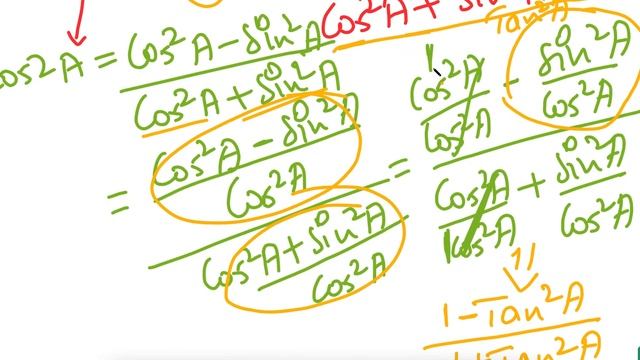 cos²A + sin²A
cos2A = cos²A - sin²A / cos²A + sin²A
= (cos²A - sin²A / cos²A) / (cos²A + sin²A / cos²A) = (cos²A / cos²A - sin²A / cos²A) / (cos²A / cos²A + sin²A / cos²A)
1 - Tan²A / 1 + Tan²A